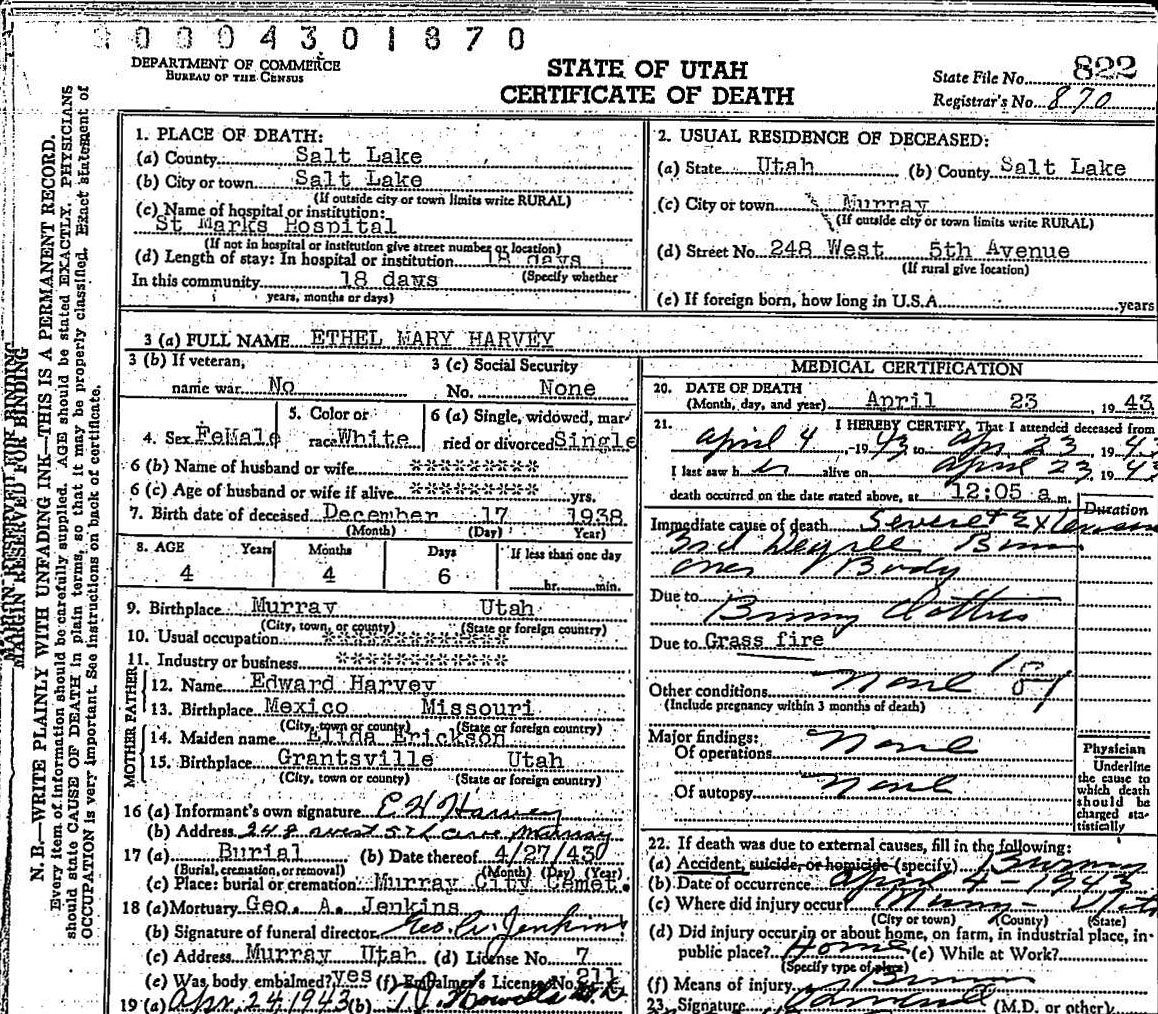 0004301870
DEPARTMENT OF COMMERCE
BUREAU OF THE CENSUS
STATE OF UTAH
CERTIFICATE OF DEATH
State File No. 822
Registrar's No. 870
MARGIN RESERVED FOR BINDING
N. B.—WRITE PLAINLY WITH UNFADING INK—THIS IS A PERMANENT RECORD.
Every item of information should be carefully supplied. AGE should be stated EXACTLY. PHYSICIANS
should state CAUSE OF DEATH in plain terms, so that it may be properly classified. Exact statement of
OCCUPATION is very important. See instructions on back of certificate.
1. PLACE OF DEATH:
(a) County Salt Lake
(b) City or town Salt Lake
(If outside city or town limits write RURAL)
(c) Name of hospital or institution:
St Marks Hospital
(If not in hospital or institution give street number or location)
(d) Length of stay: In hospital or institution 18 days
(Specify whether
In this community 18 days
years, months or days)
2. USUAL RESIDENCE OF DECEASED:
(a) State Utah (b) County Salt Lake
(c) City or town Murray
(If outside city or town limits write RURAL)
(d) Street No. 248 West 5th Avenue
(If rural give location)
(e) If foreign born, how long in U.S.A. years
3 (a) FULL NAME ETHEL MARY HARVEY
3 (b) If veteran,
name war No
3 (c) Social Security
No. None
4. Sex FeMale
5. Color or
race White
6 (a) Single, widowed, mar-
ried or divorced Single
6 (b) Name of husband or wife **********
6 (c) Age of husband or wife if alive ********** yrs.
7. Birth date of deceased December 17 1938
(Month) (Day) Year)
8. AGE Years Months Days If less than one day
4 4 6 hr. min.
9. Birthplace Murray Utah
(City, town, or county) (State or foreign country)
10. Usual occupation **************
11. Industry or business **************
FATHER
12. Name Edward Harvey
13. Birthplace Mexico Missouri
(City, town or county) (State or foreign country)
MOTHER
14. Maiden name Elida Erickson
15. Birthplace Grantsville Utah
(City, town or county) (State or foreign country)
16 (a) Informant's own signature E H Harvey
(b) Address 248 west 5th ave Murray
17 (a) Burial (b) Date thereof 4/27/43
(Burial, cremation, or removal) (Month) (Day) (Year)
(c) Place: burial or cremation Murray City Cemet.
18 (a) Mortuary Geo. A. Jenkins
(b) Signature of funeral director Geo. A. Jenkins
(c) Address Murray Utah (d) License No. 7
(e) Was body embalmed? yes (f) Embalmer's License No. 211
19 (a) Apr. 24, 1943 (b)
MEDICAL CERTIFICATION
20. DATE OF DEATH
(Month, day, and year) April 23, 1943
21. I HEREBY CERTIFY, That I attended deceased from
April 4, 1943 to Apr 23, 1943
I last saw her alive on April 23, 1943
death occurred on the date stated above, at 12:05 a.m.
Duration
Immediate cause of death Severe & Extensive
3rd Degree Burns
over Body
Due to
Burning Clothes
Due to Grass fire
Other conditions None
(Include pregnancy within 3 months of death)
Major findings:
Of operations None
Of autopsy None
Physician
Underline
the cause to
which death
should be
charged sta-
tistically
22. If death was due to external causes, fill in the following:
(a) Accident, suicide, or homicide (specify) Burning
(b) Date of occurrence April 4-1943
(c) Where did injury occur? Murray - Utah
(City or town) (County) (State)
(d) Did injury occur in or about home, on farm, in industrial place, in
public place? Home (e) While at Work?
(Specify type of place)
(f) Means of injury
23. Signature (M.D. or other)